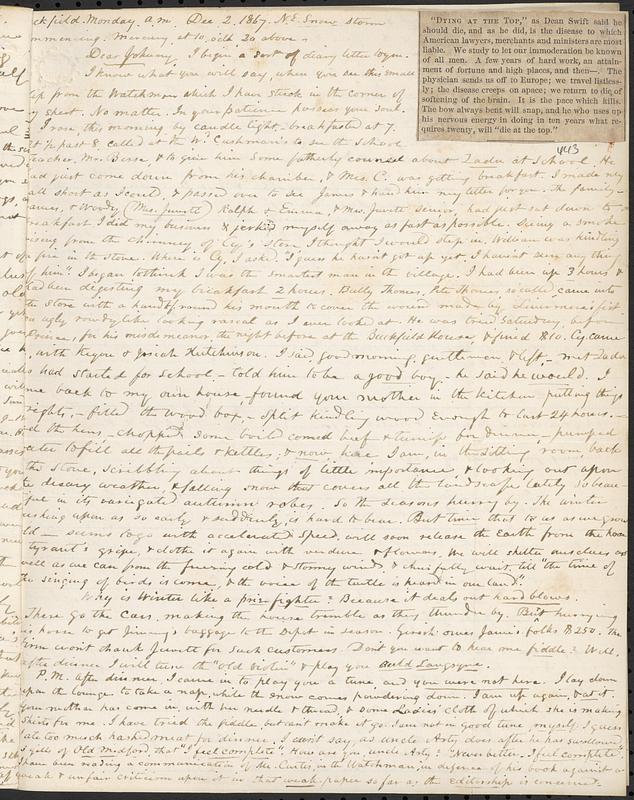 ckfield. Monday a.m. Dec 2. 1867. N.E. Snow storm
mmencing. Mercury at 10. oclk 20 above.
Dear Johnny, I begin a sort of diary letter to you.
I know what you will say, when you see this small
slip from the Watchman which I have stuck in the corner of
my sheet. No matter. In your patience possess your soul.
I rose, this morning by candle light, breakfasted at 7.
at ½ past 8. called at the Wm Cushman's to see the School
teacher, Mr. Besse, & to give him some fatherly counsel about Zadoc at School. He
had just come down from his chamber, & Mrs. C. was getting breakfast. I made my
call short as I could, & passed over to see James & hand him my letter for you. The family—
James, & Woody (Miss Jewett) Ralph & Emma, & Mrs. Jewett Senior had just sat down to
breakfast. I did my business & jerked myself away as fast as possible. Seeing a smoke
rising from the chimney of Cy's Store, I thought I would step in. William was kindling
a fire in the stove. Where is Cy, I asked. "I guess he hasn't got up yet. I haven't seen any thing
of him". I began to think I was the smartest man in the village. I had been up 3 hours &
had been digesting my breakfast 2 hours. Bully Thomes, Pete Thomes, so called, came into
the store with a handkf round his mouth to cover the wound made by fist.
an ugly rowdy like looking rascal as I ever looked at. He was tried Saturday, before
Prince, for his misdemeanor, the night before at the Buckfield House, & fined $10. Cy. came
in, with Keyou & Josiah Hutchinson. I said good morning, gentlemen, & left,— met Zadoc
as had started for school — told him to be a good boy. — he said he would. I
came back to my own house, found your mother in the kitchen putting things
to rights, — filled the wood box, — split kindling wood enough to last 24 hours. —
fed the hens, — chopped some boild corned beef & turnip for dinner, pumped
water to fill all the pails & kettles; & now here I am, in the sitting room, back
the stove, scribbling about things of little importance & looking out upon
the dreary weather, & falling snow that covers all the landscape lately so beau-
tiful in its variegated autumn robes. So the seasons hurry by. The winter
rushing upon us so early & suddenly, is hard to bear. But time that to us as we grow
old — seems to go with accelerated speed, will soon release the Earth from the hoary
tyrant's gripe, & clothe it again with verdure & flowers. We will shelter ourselves as
well as we can from the freezing cold & stormy winds, & cheerfully wait, till "the time of
the singing of birds is come, & the voice of the turtle is heard in our land".
Why is Winter like a prize fighter? Because it deals out hard blows.
There go the Cars, making the house tremble as they thunder by. But hurrying
his horse to get Jimmy's baggage to the Depot in season. Gersh. owes Jame's folks $250. The
firm wont thank Jewett for such customers. Don't you want to hear me fiddle? Well,
after dinner I will tune the "old violin" & play you Auld Langsyne.
P.M. after dinner I came in to play you a tune and you were not here. I lay down
upon the lounge to take a nap, while the snow comes powdering down. I am up again, & at it.
your mother has come in, with her needle & thread, & some Ladies' cloth of which she is making
shirts for me. I have tried the fiddle, but can't make it go. I am not in good tune, myself, I guess.
ate too much hashed meat for dinner. I can't say as Uncle Asty does after he has swallowed
3 gills of Old Midford, that "I feel complete". How are you, uncle Asty? "Never better. I feel complete".
I have been reading a communication of Mr. Carter, in the Watchman, in defence of his book against a
weak & unfair criticism upon it in that weak paper so far as the editorship is concerned.
"DYING AT THE TOP," as Dean Swift said he
should die, and as he did, is the disease to which
American lawyers, merchants and ministers are most
liable. We study to let our immoderation be known
of all men. A few years of hard work, an attain-
ment of fortune and high places, and then—? The
physician sends us off to Europe; we travel listless-
ly; the disease creeps on apace; we return to die of
softening of the brain. It is the pace which kills.
The bow always bent will snap, and he who uses up
his nervous energy in doing in ten years what re-
quires twenty, will "die at the top."
443